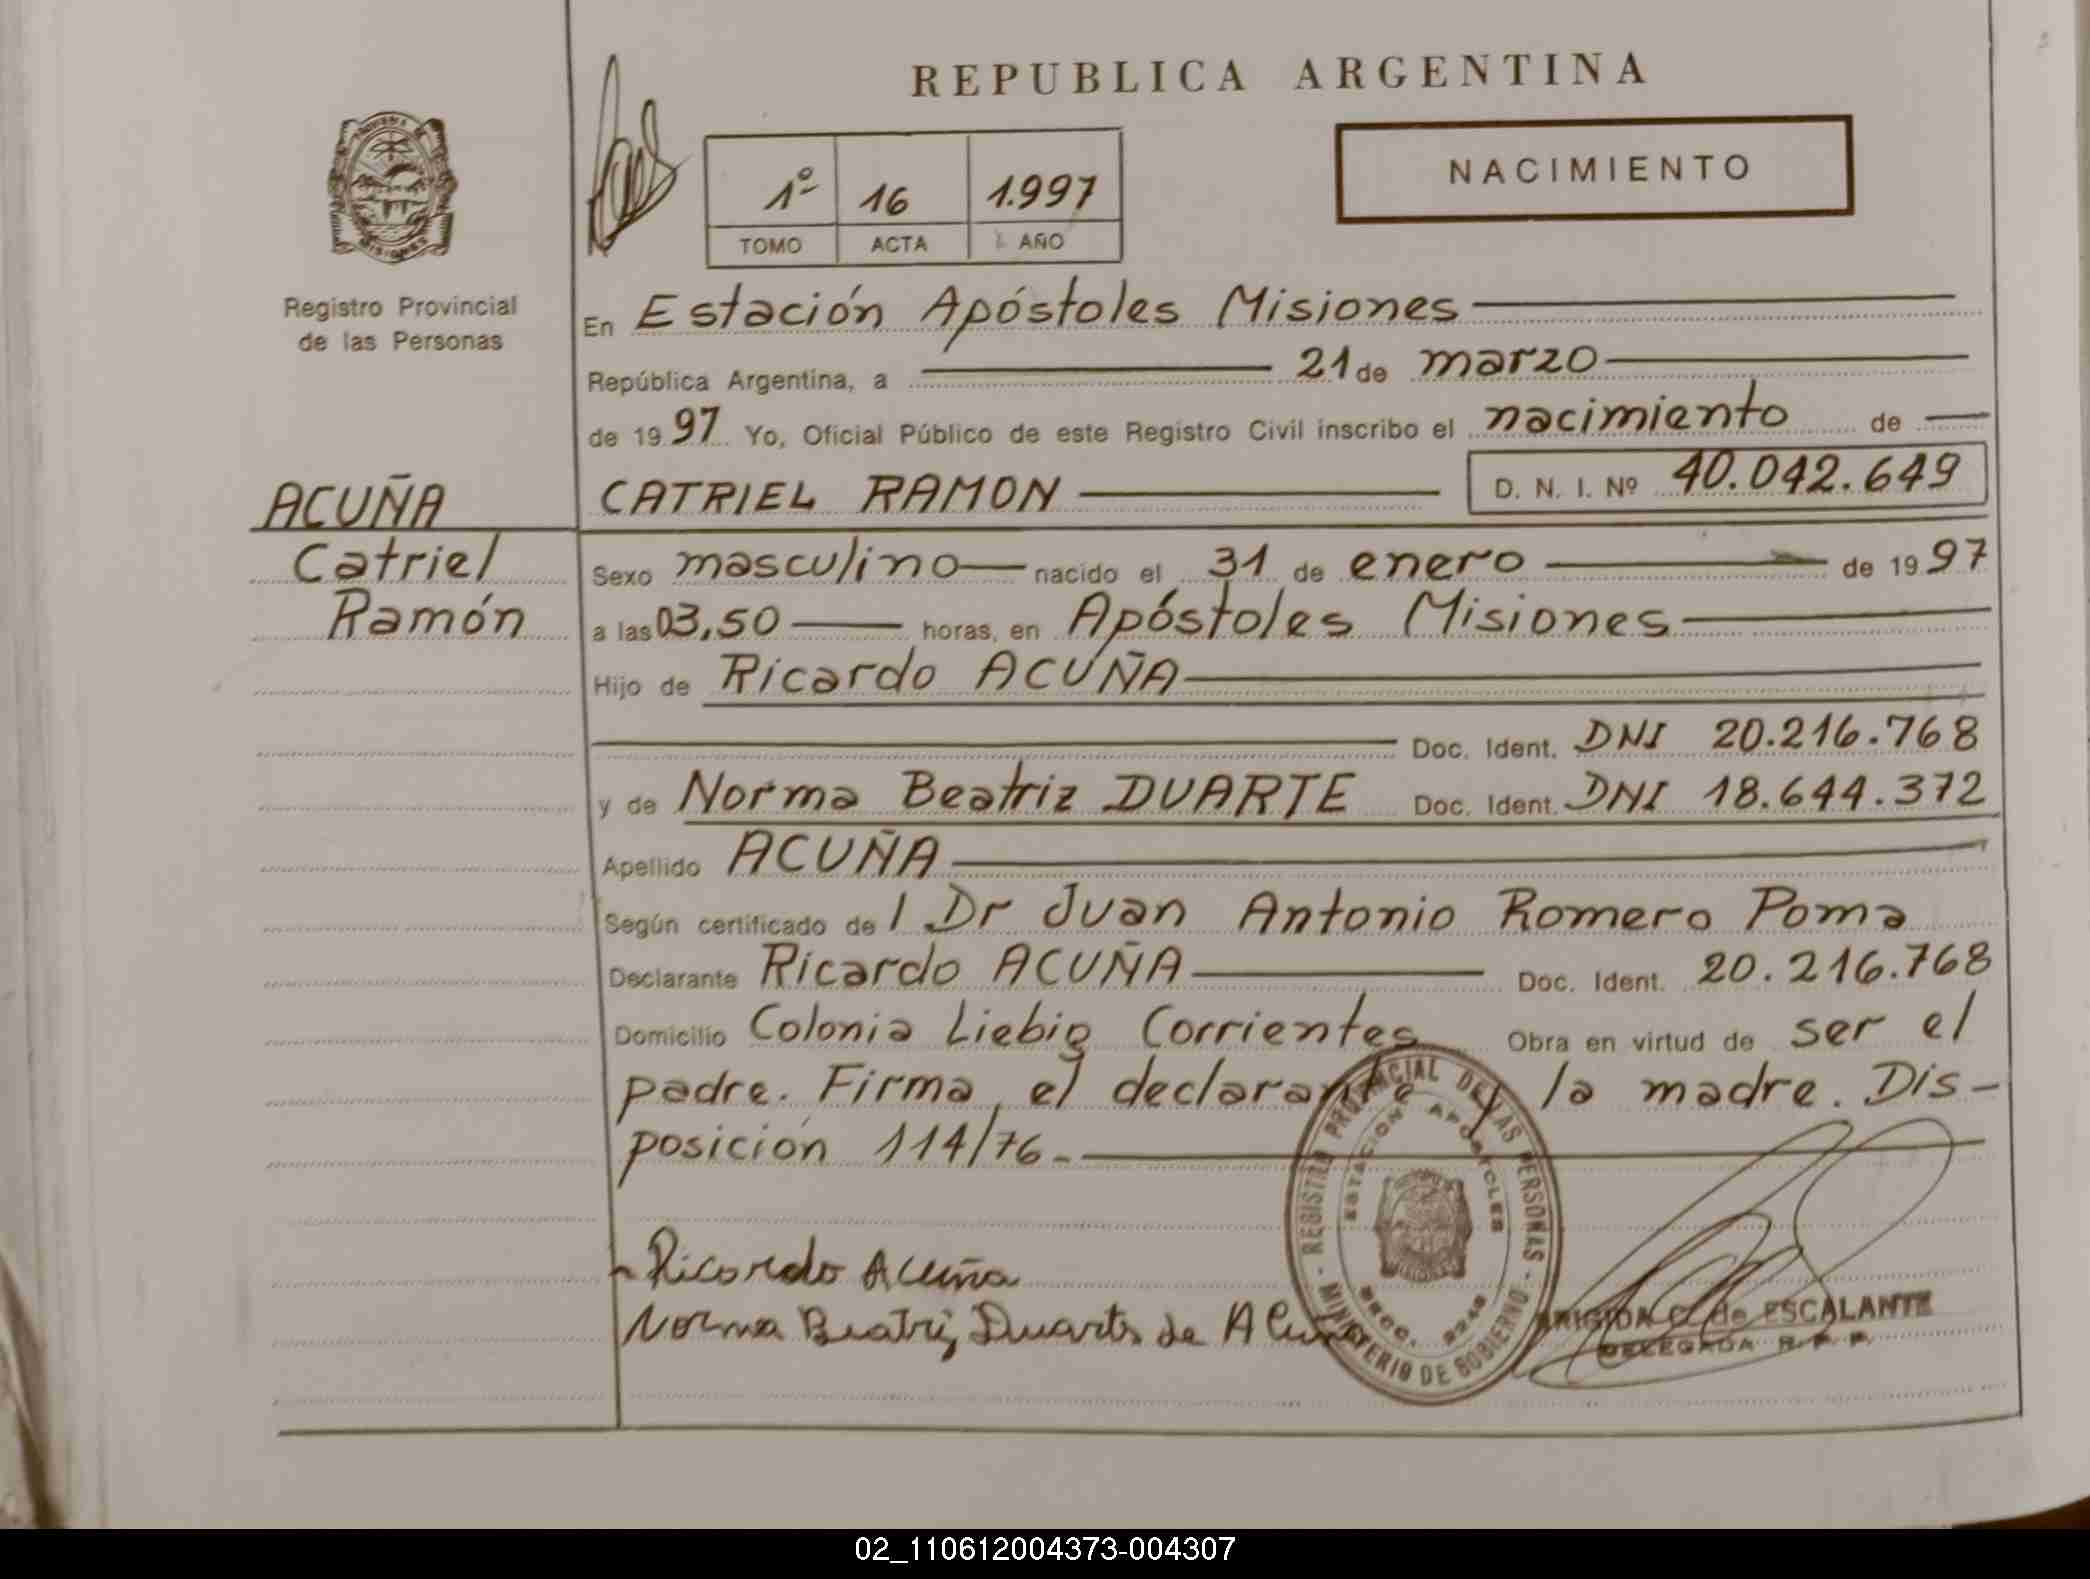 REPUBLICA ARGENTINA
NACIMIENTO
1º 16 1.997
TOMO ACTA AÑO
Registro Provincial
de las Personas
En Estación Apóstoles Misiones
República Argentina, a 21 de marzo
de 1997 Yo, Oficial Público de este Registro Civil inscribo el nacimiento de
ACUÑA
CATRIEL RAMON D. N. I. Nº 40.042.649
Catriel
Ramón
Sexo masculino nacido el 31 de enero de 1997
a las 03,50 horas, en Apóstoles Misiones
Hijo de Ricardo ACUÑA
Doc. Ident. DNI 20.216.768
y de Norma Beatriz DUARTE Doc. Ident. DNI 18.644.372
Apellido ACUÑA
Según certificado de l Dr Juan Antonio Romero Poma
Declarante Ricardo ACUÑA Doc. Ident. 20.216.768
Domicilio Colonia Liebig Corrientes Obra en virtud de ser el
padre. Firma el declarante y la madre. Dis-
posición 114/76.-
Ricardo Acuña
Norma Beatriz Duarte de Acuña
REGISTRO PROVINCIAL DE LAS PERSONAS - MINISTERIO DE GOBIERNO -
ESTACION APOSTOLES
de ESCALANTE
DELEGADA R. P. P.
02_110612004373-004307